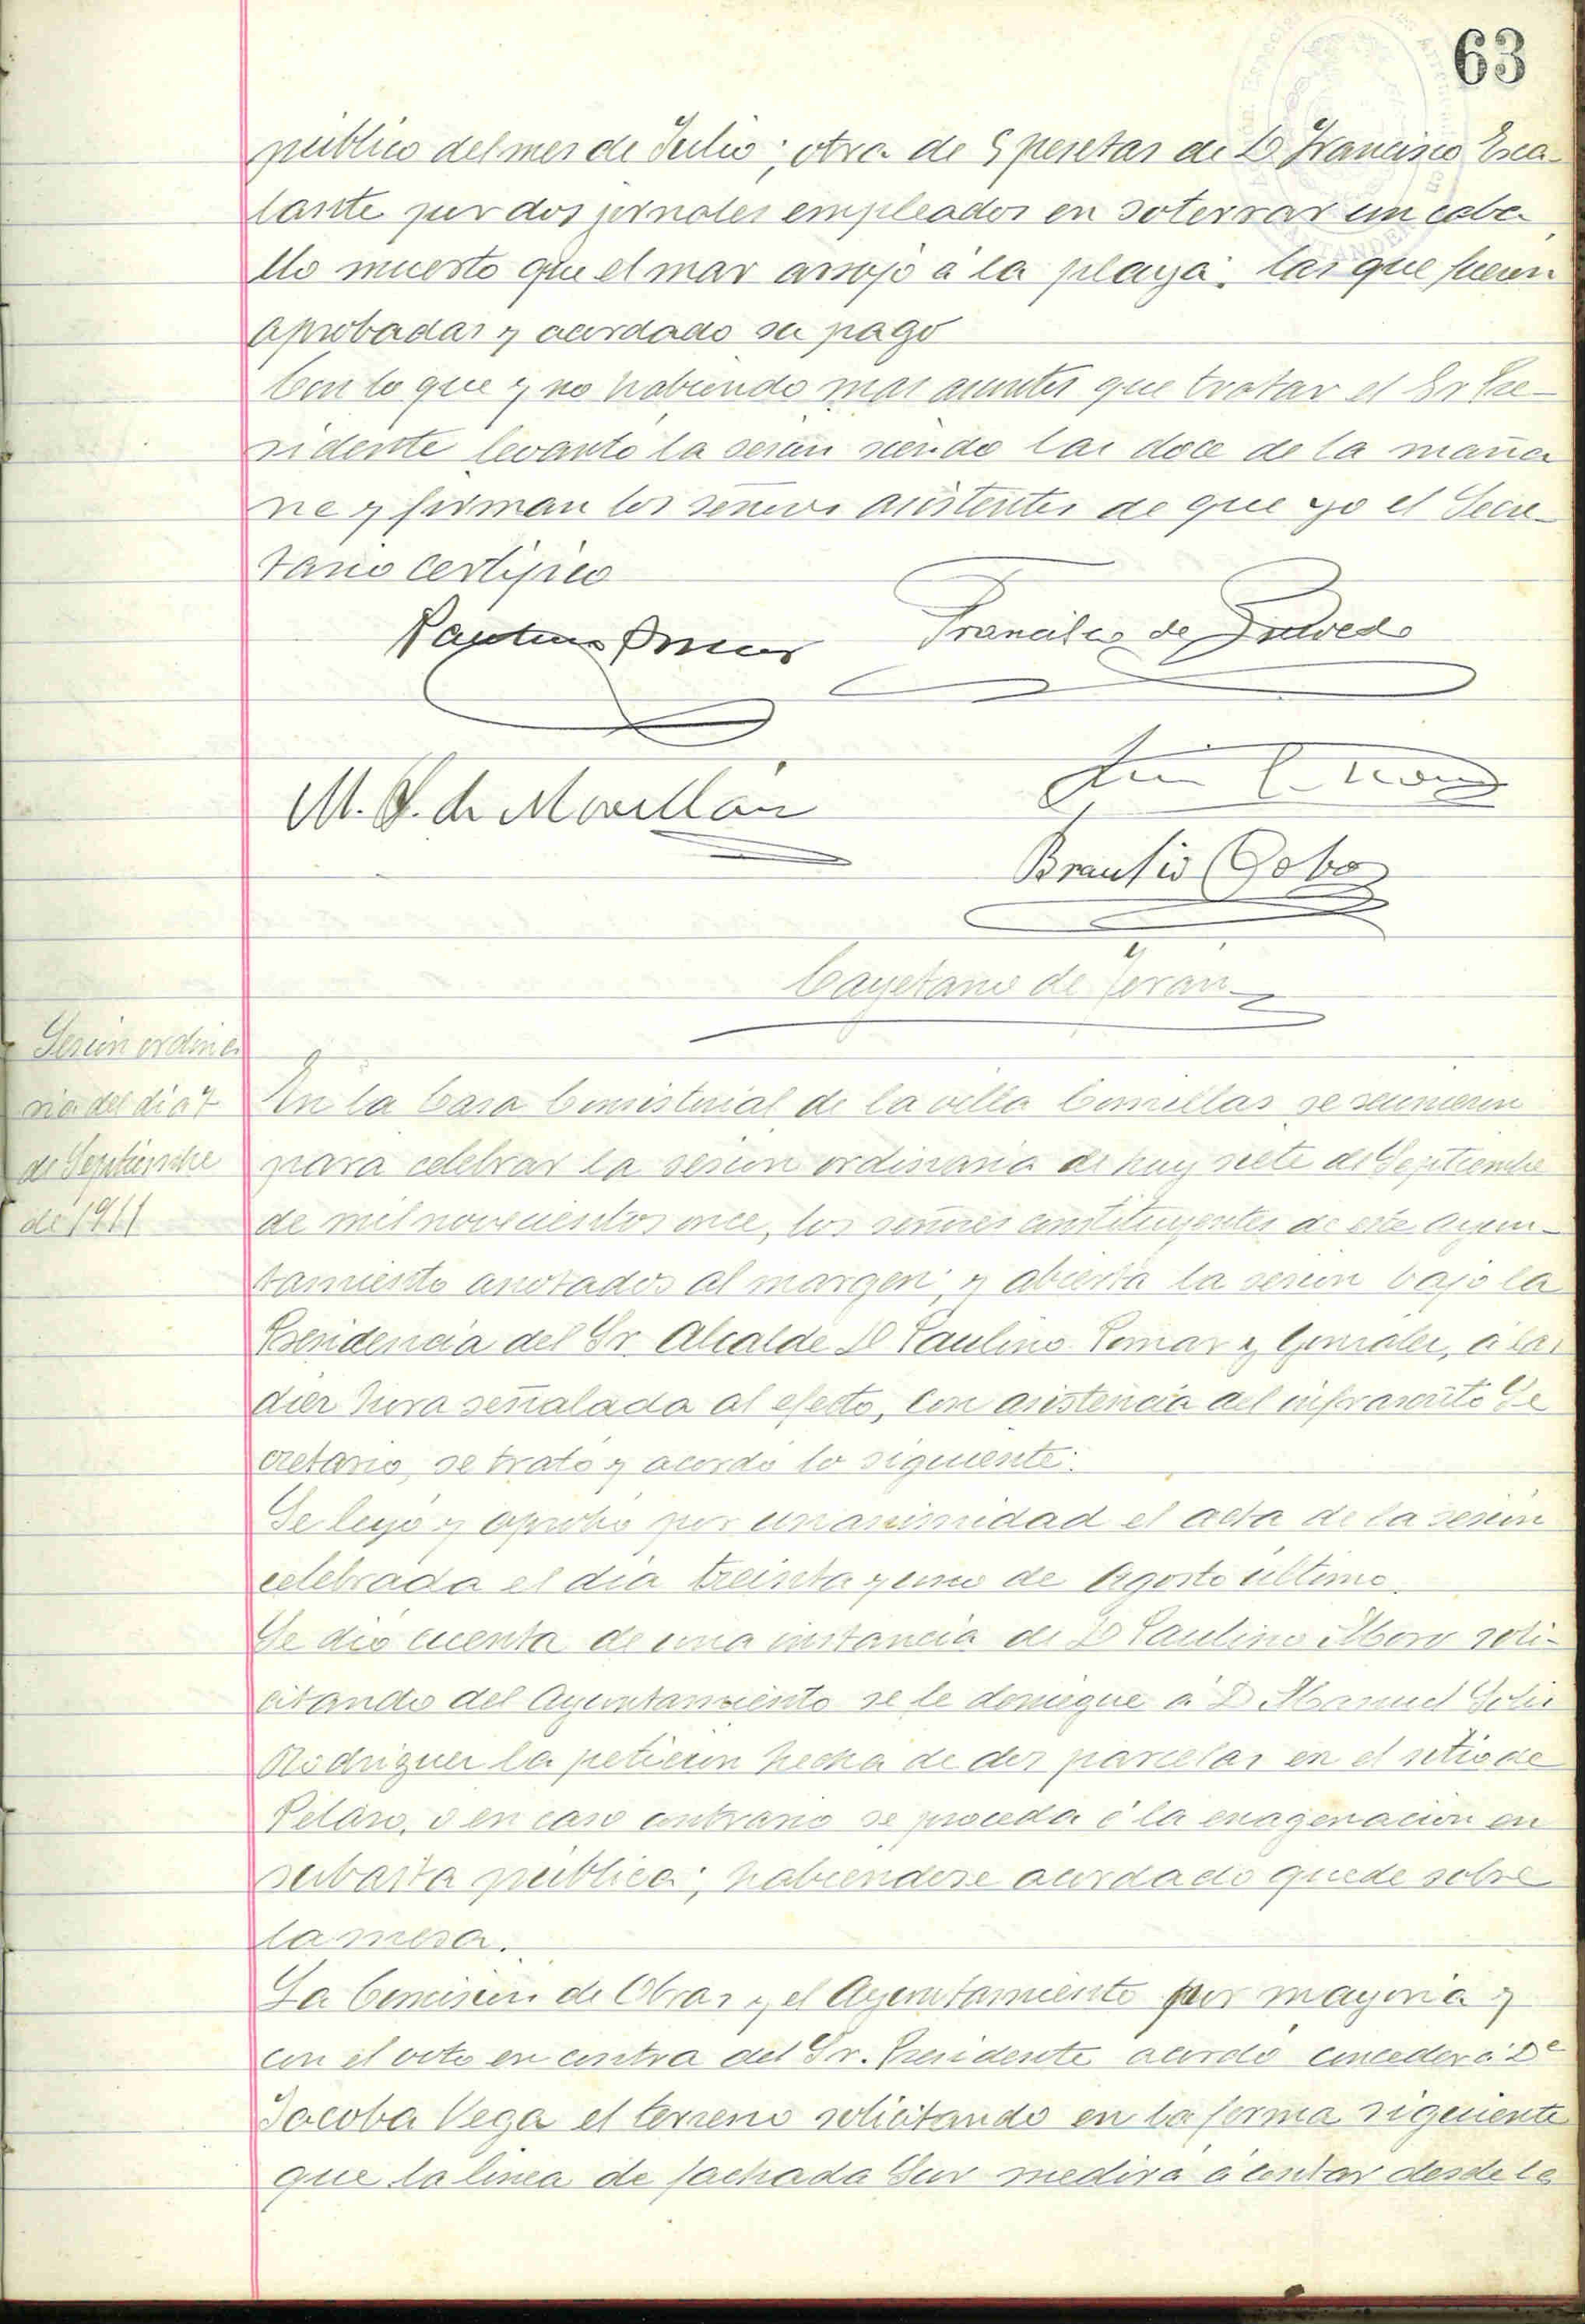 63
público del mes de Julio; otra de 5 pesetas de D Francisco Esca-
lante por dos jornales empleados en soterrar un caba
llo muerto que el mar arrojó á la playa; las que fueron
aprobadas y acordado su pago
Con lo que y no habiendo mas asuntos que tratar el Sr Pre-
sidente levantó la sesion siendo las doce de la maña
na y firman los señores asistentes de que yo el Secre-
tario certifico
Francisco de
M. S. de Movellán
Braulio Cobo
Cayetano de Terán
Sesion ordina
ria del dia 7
de Septiembre
de 1911
En la Casa Consistorial de la villa Comillas se reunieron
para celebrar la sesion ordinaria de hoy siete de Septiembre
de mil novecientos once, los señores constituyentes de este Ayun-
tamiento anotados al margen; y abierta la sesion bajo la
Presidencia del Sr. Alcalde D Paulino Pomar y Gonzalez, á las
diez hora señalada al efecto, con asistencia del infrascrito Se
cretario, se trató y acordó lo siguiente:
Se leyó y aprobó por unanimidad el acta de la sesion
celebrada el dia treinta y uno de Agosto último.
Se dió cuenta de una instancia de D Paulino Moro soli-
citando del Ayuntamiento se le deniegue á D Manuel Solis
Rodriguez la peticion hecha de dos parcelas en el sitio de
o en caso contrario se proceda á la enagenacion en
subasta pública; habiendose acordado quede sobre
la mesa.
La Comision de Obras y el Ayuntamiento por mayoria y
con el voto en contra del Sr. Presidente acordó conceder á Dª
Jacoba Vega el terreno solicitando en la forma siguiente
que la linea de fachada Sur medirá á contar desde la